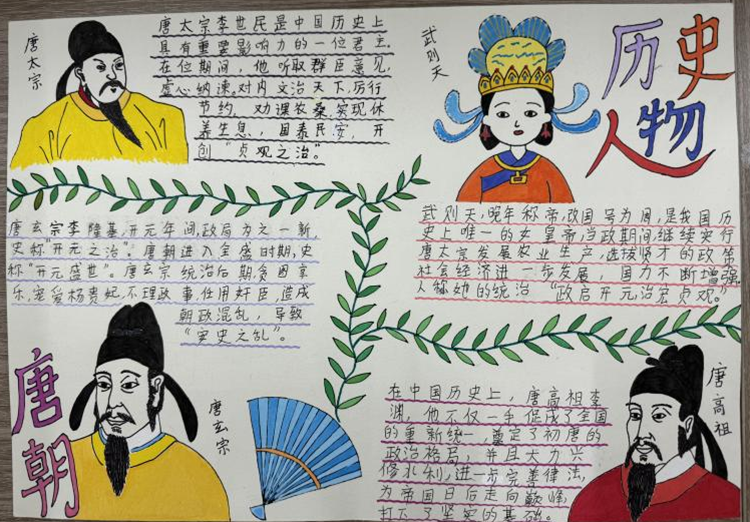 历史
人物
唐太宗
唐太宗李世民是中国历史上
具有重要影响力的一位君主。
在位期间，他听取群臣意见，
虚心纳谏。对内文治天下，厉行
节约，劝课农桑，实现休
养生息，国泰民安，开
创“贞观之治”。
武则天
武则天，晚年称帝，改国号为周，是我国历
史上唯一的女皇帝，当政期间，继续实行
唐太宗发展农业生产，选拔贤才的政策
社会经济进一步发展，国力不断增强
人称她的统治“政启开元，治宏贞观。”
唐玄宗李隆基，开元年间，政局为之一新，
史称“开元之治”。唐朝进入全盛时期，史
称“开元盛世”。唐玄宗统治后期，贪图享
乐，宠爱杨贵妃，不理政事，任用奸臣，造成
朝政混乱，导致
“安史之乱”。
唐朝
唐玄宗
唐高祖
在中国历史上，唐高祖李
渊，他不仅一手促成了全国
的重新统一，奠定了初唐的
政治格局，并且大力兴
修水利，进一步完善律法，
为帝国日后走向巅峰
打下了坚实的基础。